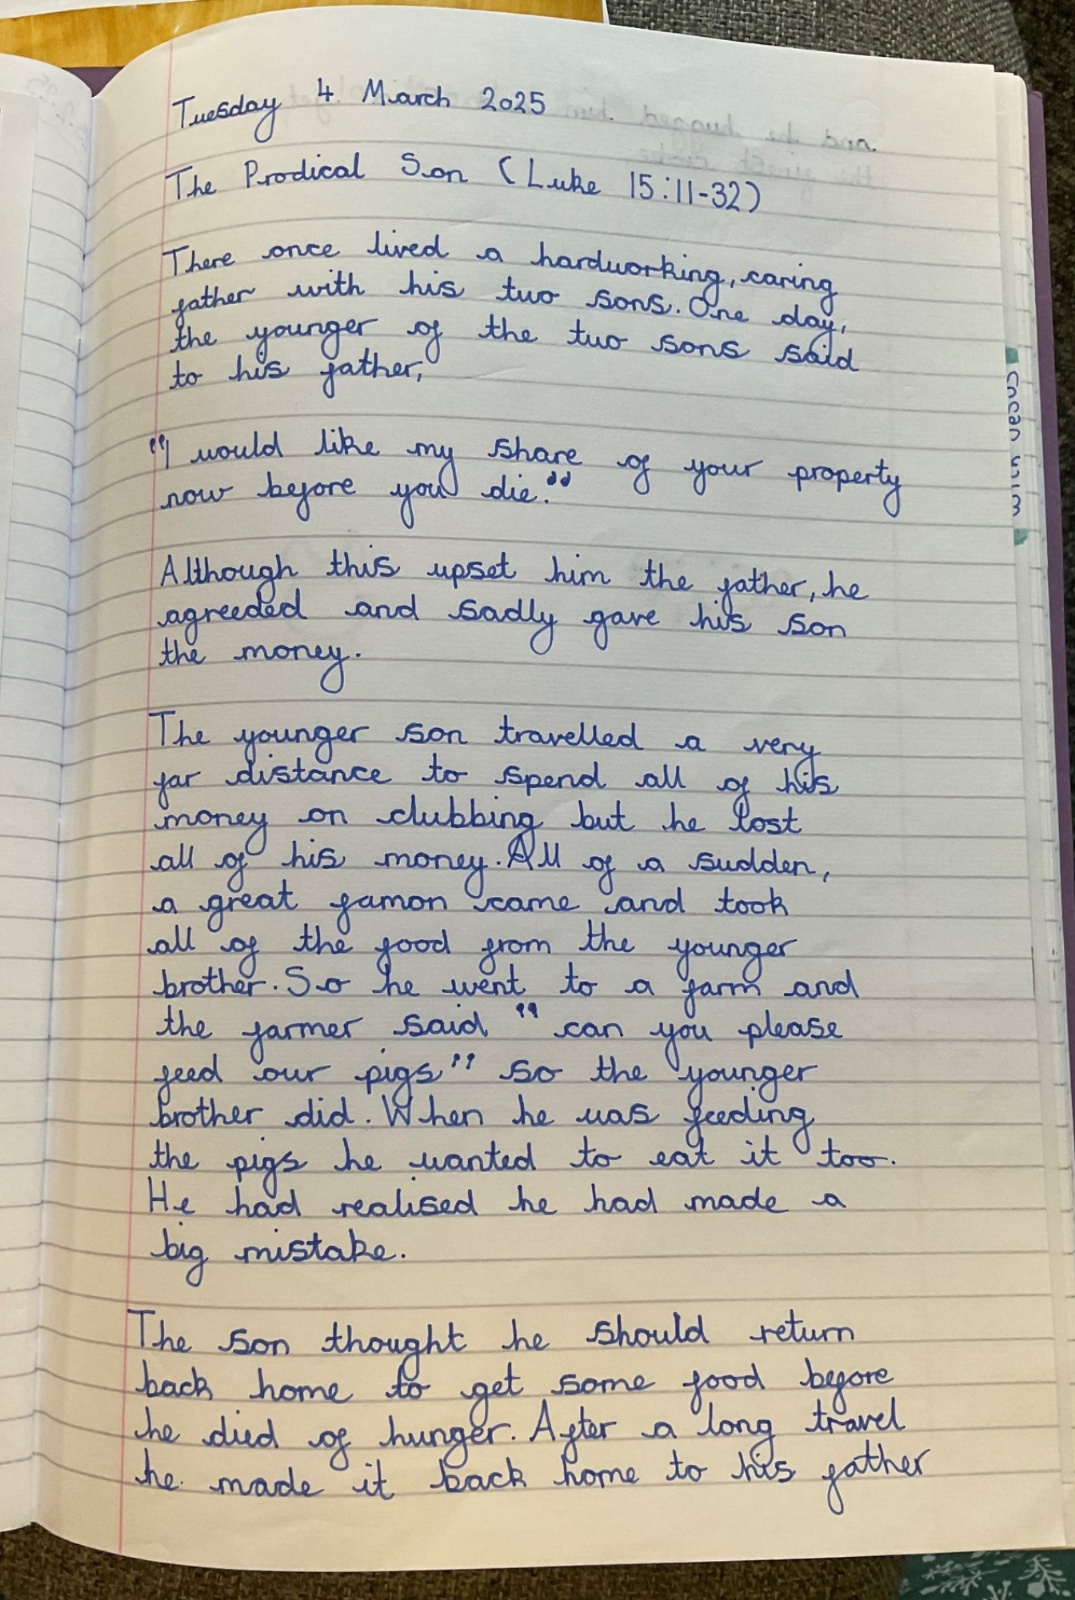 Tuesday 4 March 2025
The Prodical Son (Luke 15:11-32)
There once lived a hardworking, caring
father with his two sons. One day,
the younger of the two sons said
to his father,
"I would like my share of your property
now before you die."
Although this upset him the father, he
agreeded and sadly gave his son
the money.
The younger son travelled a very
far distance to spend all of his
money on clubbing but he lost
all of his money. All of a sudden,
a great famon came and took
all of the food from the younger
brother. So he went to a farm and
the farmer said "can you please
feed our pigs" so the younger
brother did. When he was feeding
the pigs he wanted to eat it too.
He had realised he had made a
big mistake.
The son thought he should return
back home to get some food before
he died of hunger. After a long travel
he made it back home to his father